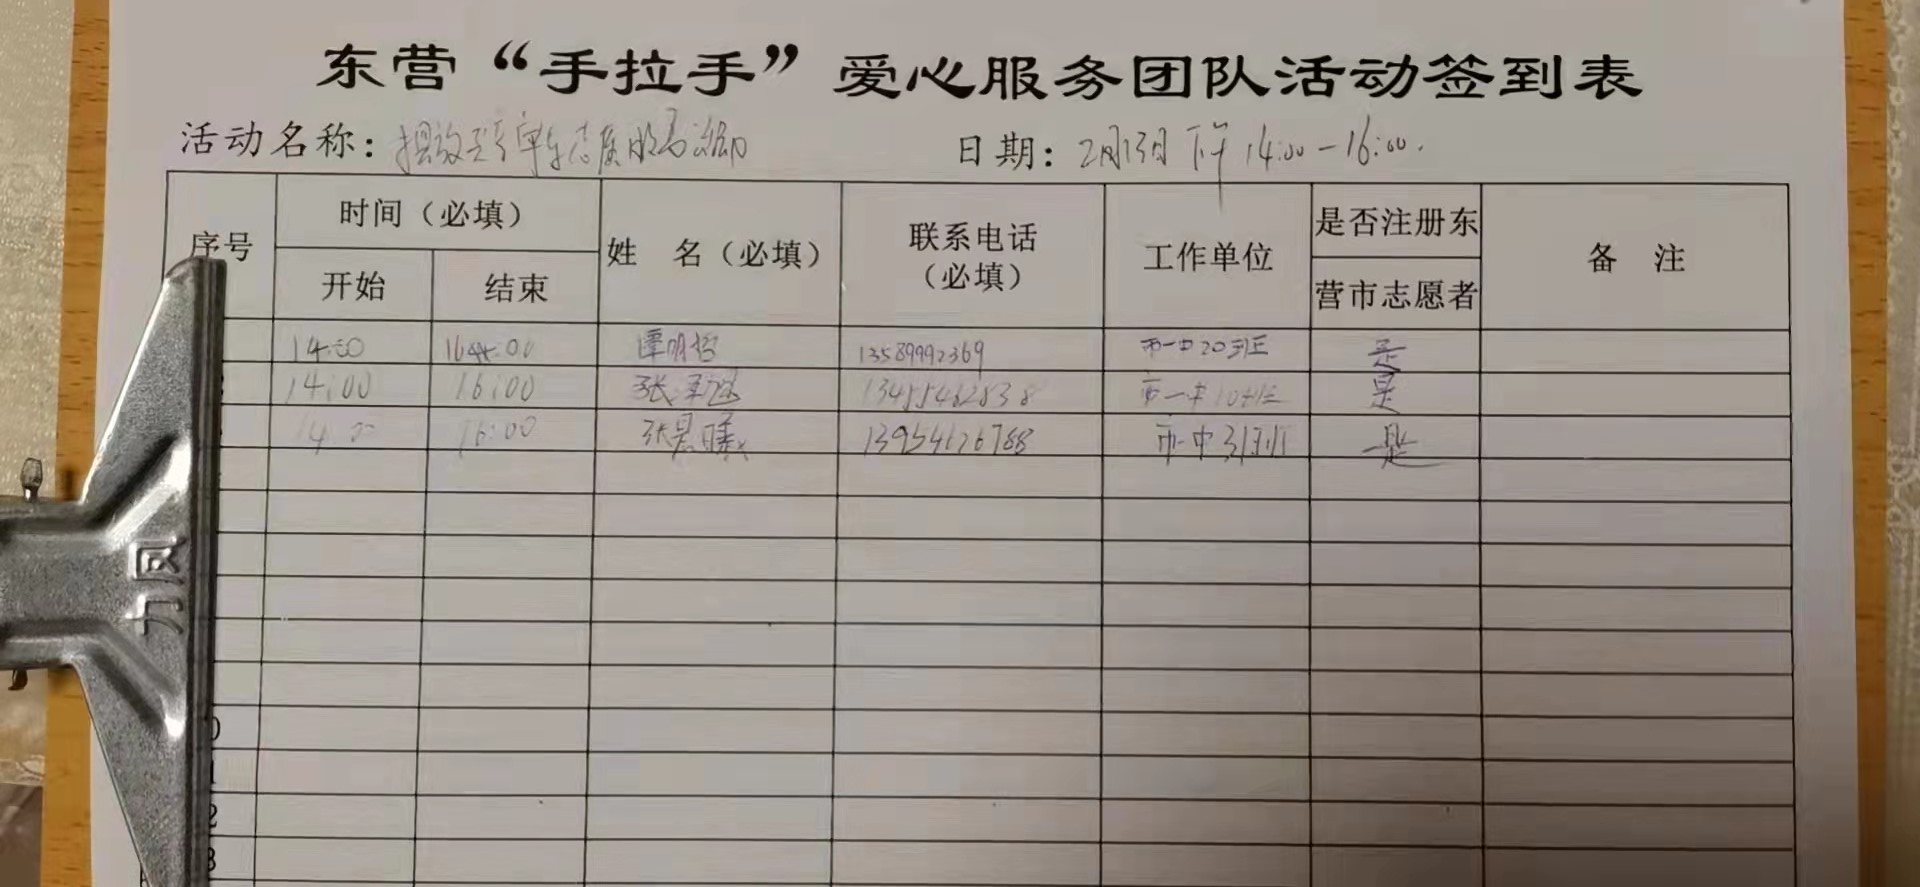 东营“手拉手”爱心服务团队活动签到表
活动名称：摆放共享单车志愿服务活动 日期：2月13日 下午 14:00-16:00.
序号 时间（必填） 姓 名（必填） 联系电话（必填） 工作单位 是否注册东营市志愿者 备 注
开始 结束
14:00 16:00 谭明哲 13589992369 市一中20班 是
14:00 16:00 张 市一中10班 是
14:00 16:00 张 13954626788 市一中31班 是
力风
0
1
2
3